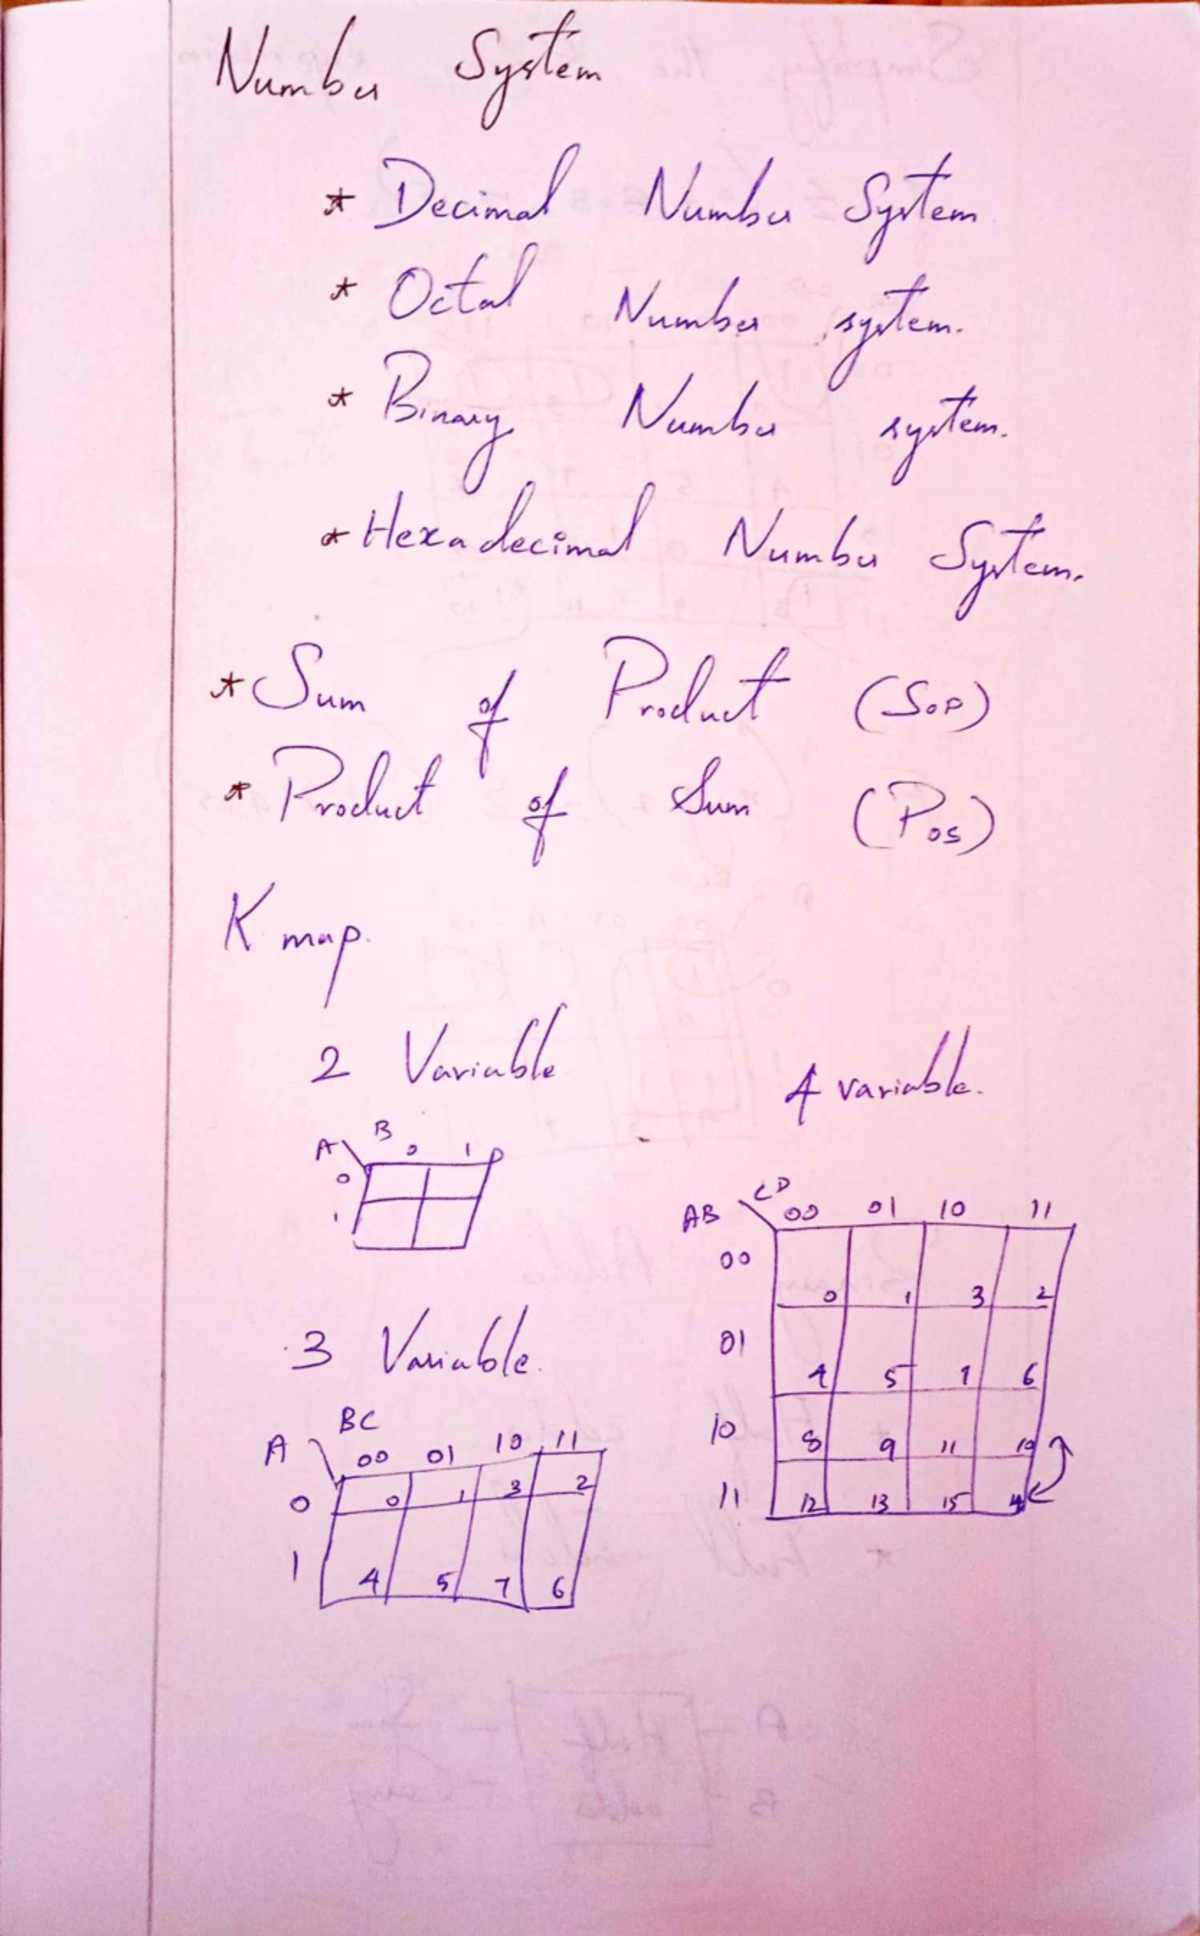 Number System
* Decimal Number System
* Octal Number system.
* Binary Number system.
* Hexadecimal Number System.
* Sum of Product (SOP)
* Product of Sum (POS)
K map.
2 Variable
A B 0 1
0
1
3 Variable.
A BC 00 01 10 11
0 0 1 3 2
1 4 5 7 6
4 variable.
AB CD 00 01 10 11
00 0 1 3 2
01 4 5 7 6
10 8 9 11 10
11 12 13 15 14